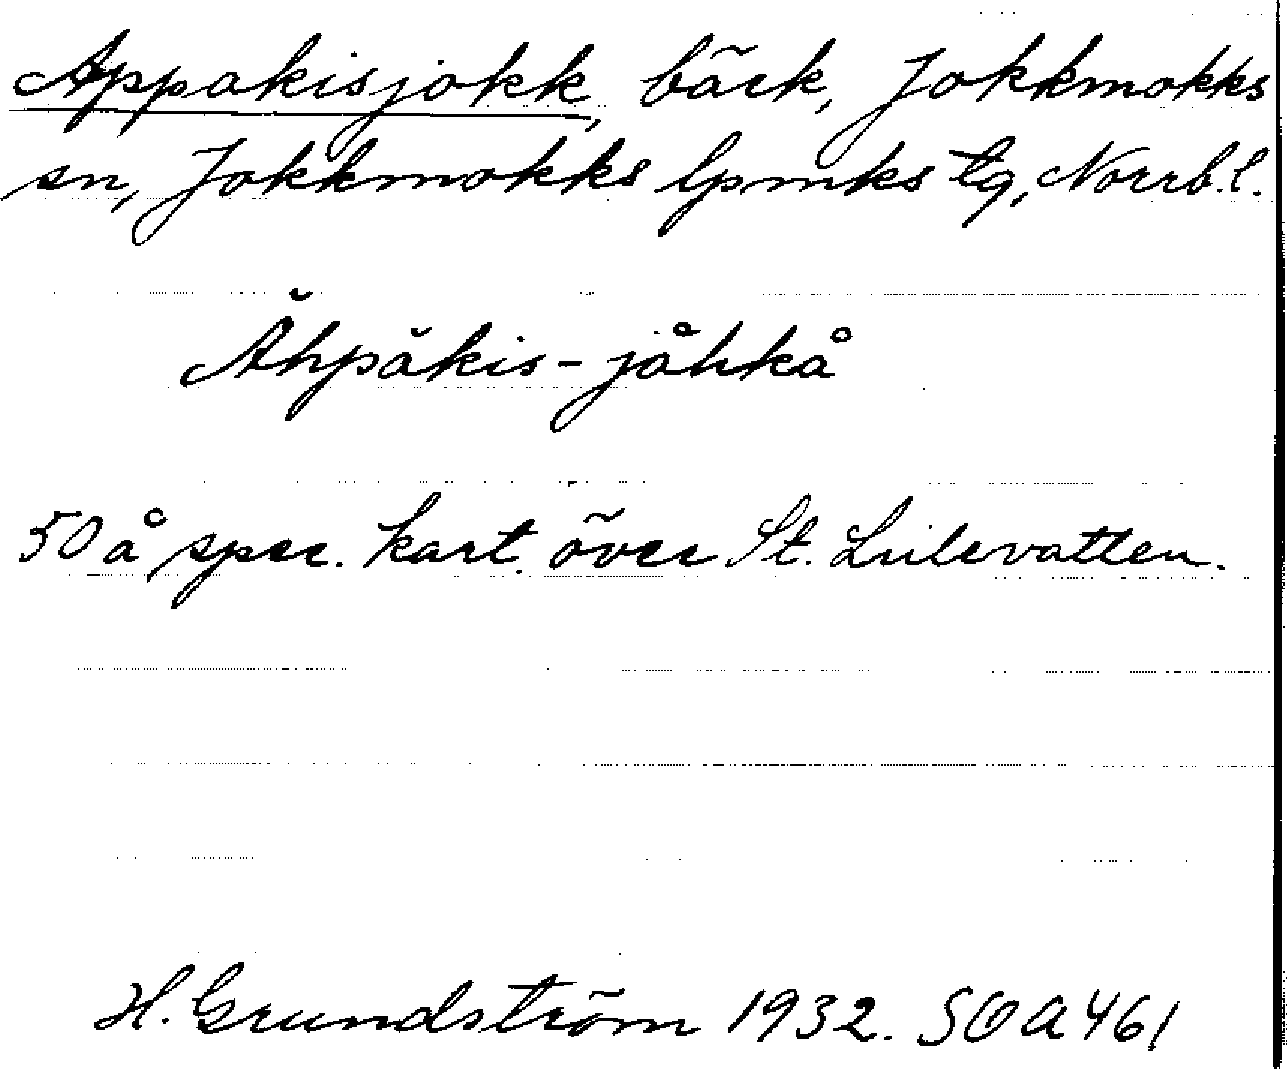 Appakisjokk, bäck, Jokkmokks
sn, Jokkmokks lpmks tg, Norrb. l.
Ăhpăkis-jåhkå
50 å spec. kart. över St. Lulevatten.
H. Grundström 1932. SOA461